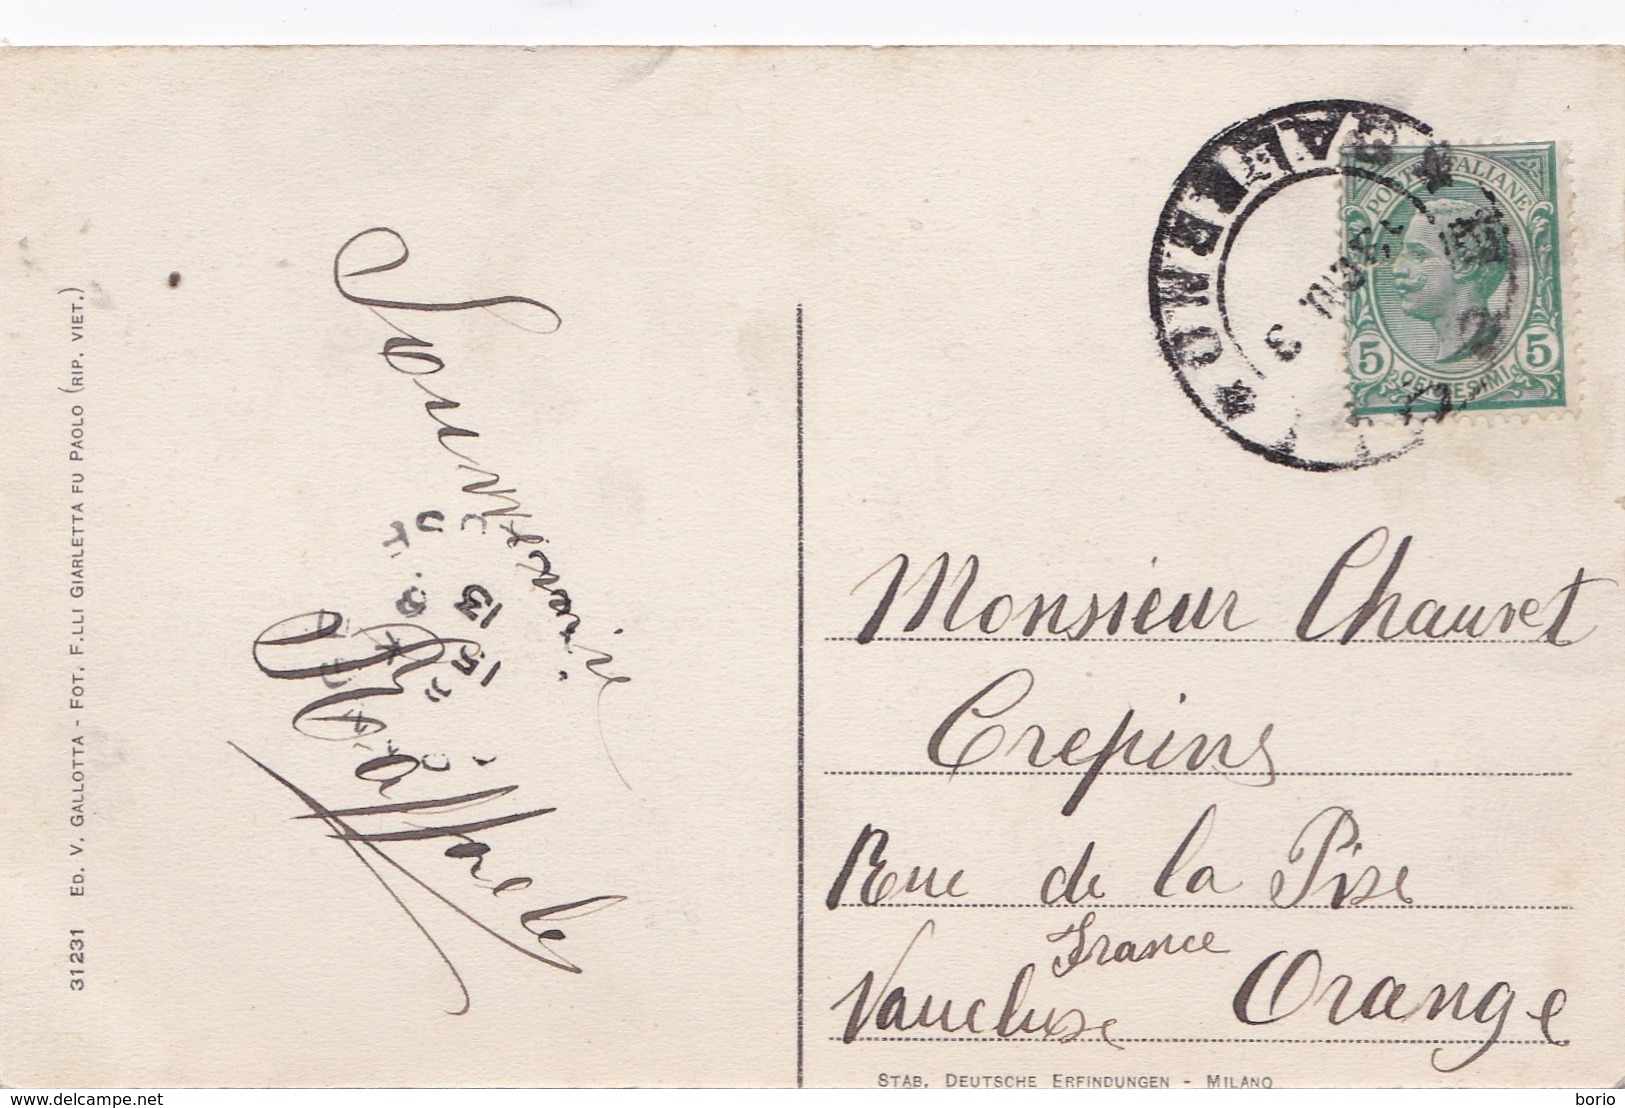 31231 ED. V. GALLOTTA - FOT. F.LLI GIARLETTA FU PAOLO (RIP. VIET.)
Souvenir
Raffaele
15 13
POSTE ITALIANE
5 CENTESIMI 5
Monsieur Chauvet
Crepins
Rue de la Pise
France
Vaucluse Orange
STAB. DEUTSCHE ERFINDUNGEN - MILANO
www.delcampe.net
borio